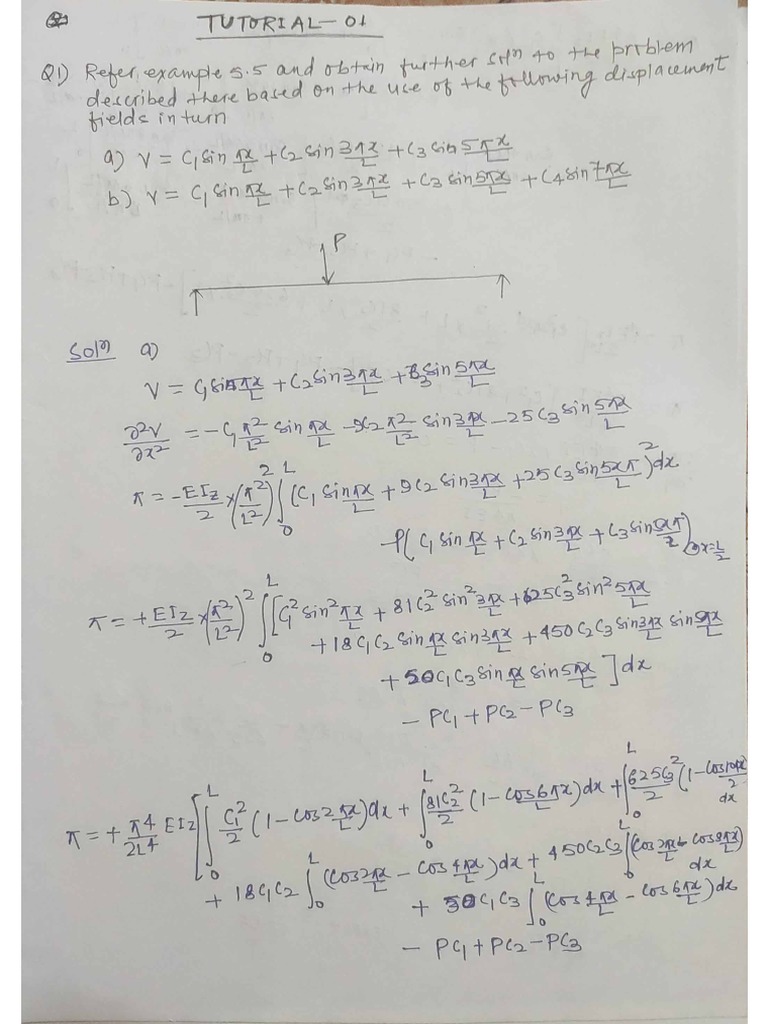 TUTORIAL-01
Q1) Refer, example 5.5 and obtain further solⁿ to the problem
described there based on the use of the following displacement
fields in turn
a) V = C₁ sin πx/L + C₂ sin 3πx/L + C₃ sin 5πx/L
b) V = C₁ sin πx/L + C₂ sin 3πx/L + C₃ sin 5πx/L + C₄ sin 7πx/L
P
Solⁿ a)
V = C₁ sin πx/L + C₂ sin 3πx/L + C₃ sin 5πx/L
∂²V/∂x² = -C₁ π²/L² sin πx/L - 9C₂ π²/L² sin 3πx/L - 25C₃ sin 5πx/L
π = -EIz/2 × (π²/L²)² ∫₀ᴸ (C₁ sin πx/L + 9C₂ sin 3πx/L + 25C₃ sin 5xπ/L)² dx
- P( C₁ sin πx/L + C₂ sin 3πx/L + C₃ sin 5xπ/L) @x=L/2
π = +EIz/2 × (π²/L²)² ∫₀ᴸ [C₁² sin² πx/L + 81C₂² sin² 3πx/L + 625C₃² sin² 5πx/L
+ 18C₁C₂ sin πx/L sin 3πx/L + 450C₂C₃ sin 3πx/L sin 5πx/L
+ 50C₁C₃ sin πx/L sin 5πx/L ] dx
- PC₁ + PC₂ - PC₃
π = + π⁴/2L⁴ EIz [ ∫₀ᴸ C₁²/2 (1 - cos 2πx/L) dx + ∫₀ᴸ 81C₂²/2 (1 - cos 6πx/L) dx + ∫₀ᴸ 625C₃²/2 (1 - cos 10πx/2 dx
+ 18C₁C₂ ∫₀ᴸ (cos 2πx/L - cos 4πx/L) dx + 450C₂C₃ ∫₀ᴸ (cos 2πx/L - cos 8πx/L) dx
+ 50C₁C₃ ∫₀ᴸ (cos 4πx/L - cos 6πx/L) dx
- PC₁ + PC₂ - PC₃